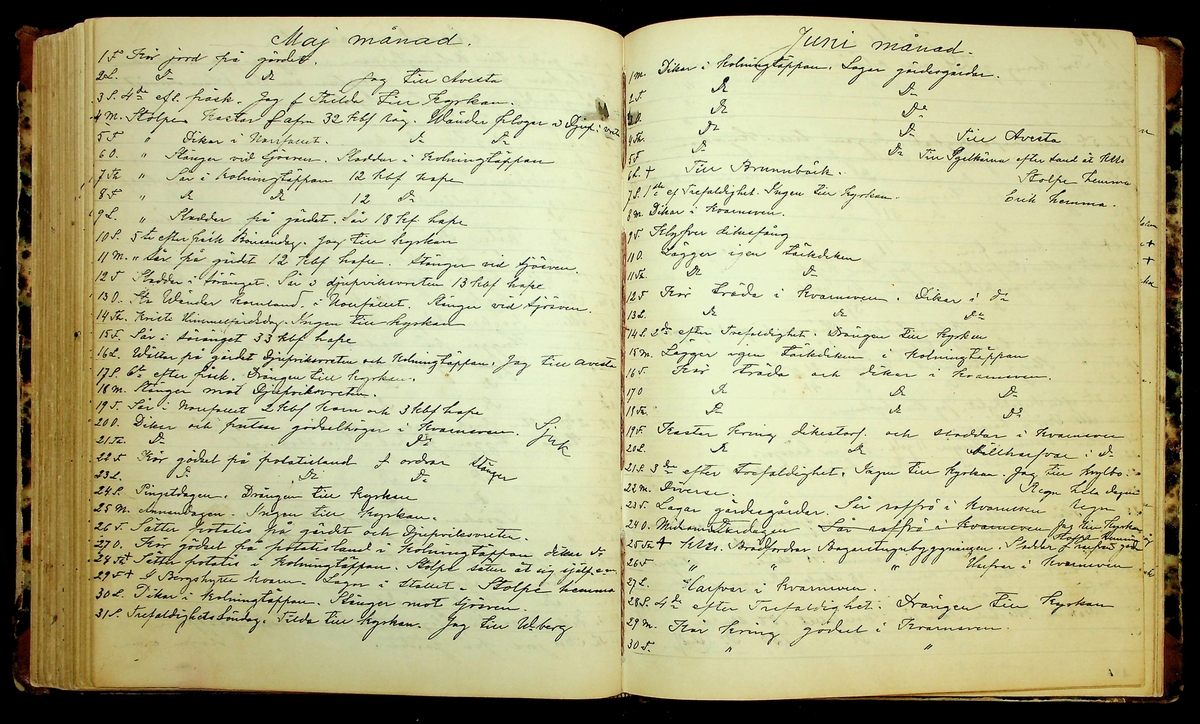 Maj månad.
1 F Kör jord på gärdet.
2 L. Do Do Jag till Avesta
3 S. 4de ef. påsk. Jag f Thilda till Kyrkan.
4 M. Stolpe kastar 32 kbf råg. Vänder plogar
5 T " Dikar i Norrfallet. Do Do
6 O. " Stänger vid Sjösven. Sladdar i Kolningtäppan
7 Th " Sår i Kolningtäppan 12 kbf hafre
8 F " Do Do 12 Do
9 L. " Sladdar på gärdet. Sår 18 kf hafre
10 S. 5te efter påsk Bönsöndag. Jag till Kyrkan
11 M. " Sår på gärdet 12 kbf hafre. Stänger vid Sjösven.
12 T Sladdar i Sår 13 kbf hafre
13 O. Vänder kornland i Norrfallet. Stänger vid Sjösven.
14 Th. Kristi Himmelfärdsdag. Ingen till Kyrkan
15 F. Sår i 33 kbf hafre
16 L. Vältar på gärdet Djupviksvreten och Kolningtäppan. Jag till Avesta
17 S. 6te efter påsk. Drängen till Kyrkan.
18 M. Stänger mot Djupviksvreten.
19 T. Sår i Norrfallet 2 kbf korn och 3 kbf hafre
20 O. Diker och gödselhögar i Kvarnsven. Sjuk
21 Th. Do Do
22 F. Kör gödsel på potatisland f ordnar Stänger
23 L. Do Do Do
24 S. Pingstdagen. Drängen till Kyrkan
25 M. Annandagen. Ingen till Kyrkan.
26 T. Sätter potatis på gärdet och Djupviksvreten.
27 O. Kör gödsel på potatisland i Kolningtäppan diker do
28 Th Sätter potatis i Kolningtäppan. Stolpe sätter åt sig sjelf
29 F + I Bergshytte Kvarn. Lagar i Stallet. Stolpe hemma
30 L. Dikar i Kolningtäppan. Stänger mot Sjösven.
31 S. Trefaldighets Söndag. Tilda till Kyrkan. Jag till
Juni månad.
1 M. Dikar i Kolningtäppan. Lagar gärdesgårdar.
2 T Do Do
3 O. Do Do
4 Th Do Do Till Avesta
5 F Do Do Till efter
6 L + Till Brunnbäck. Stolpe hemma
7 S. 1sta ef Trefaldighet. Ingen till Kyrkan. Erik hemma.
8 M. Dikar i Kvarnsven.
9 T. Klyfver
10 O. Lägger igen Täckdiken
11 Th. Do Do
12 F Kör Träda i Kvarnsven. Dikar i do
13 L. Do Do Do
14 S. 2dra efter Trefaldighet. Drängen till Kyrkan
15 M. Lägger igen Täckdiken i Kolningtäppan
16 T. Kör Träda och dikar i Kvarnsven.
17 O Do Do Do
18 Th. Do Do Do
19 F. Kastar kring dikestorf. och sladdar i Kvarnsven
20 L. Do Do i Do
21 S. 3dje efter Trefaldighet. Ingen till Kyrkan. Jag till Krylbo.
22 M. Diverse. Regn hela dagen
23 T. Lagar gärdesgårdar. Sår i Kvarnsven Regn
24 O. Midsommardagen. Sår i Kvarnsven Jag till Kyrkan
25 Th + Bagarstugubyggningen. Sladdar
26 F " " " Harfvar i Kvarnsven
27 L. Harfvar i Kvarnsven
28 S. 4de efter Trefaldighet. Drängen till Kyrkan
29 M. Kör kring gödsel i Kvarnsven.
30 T. " "